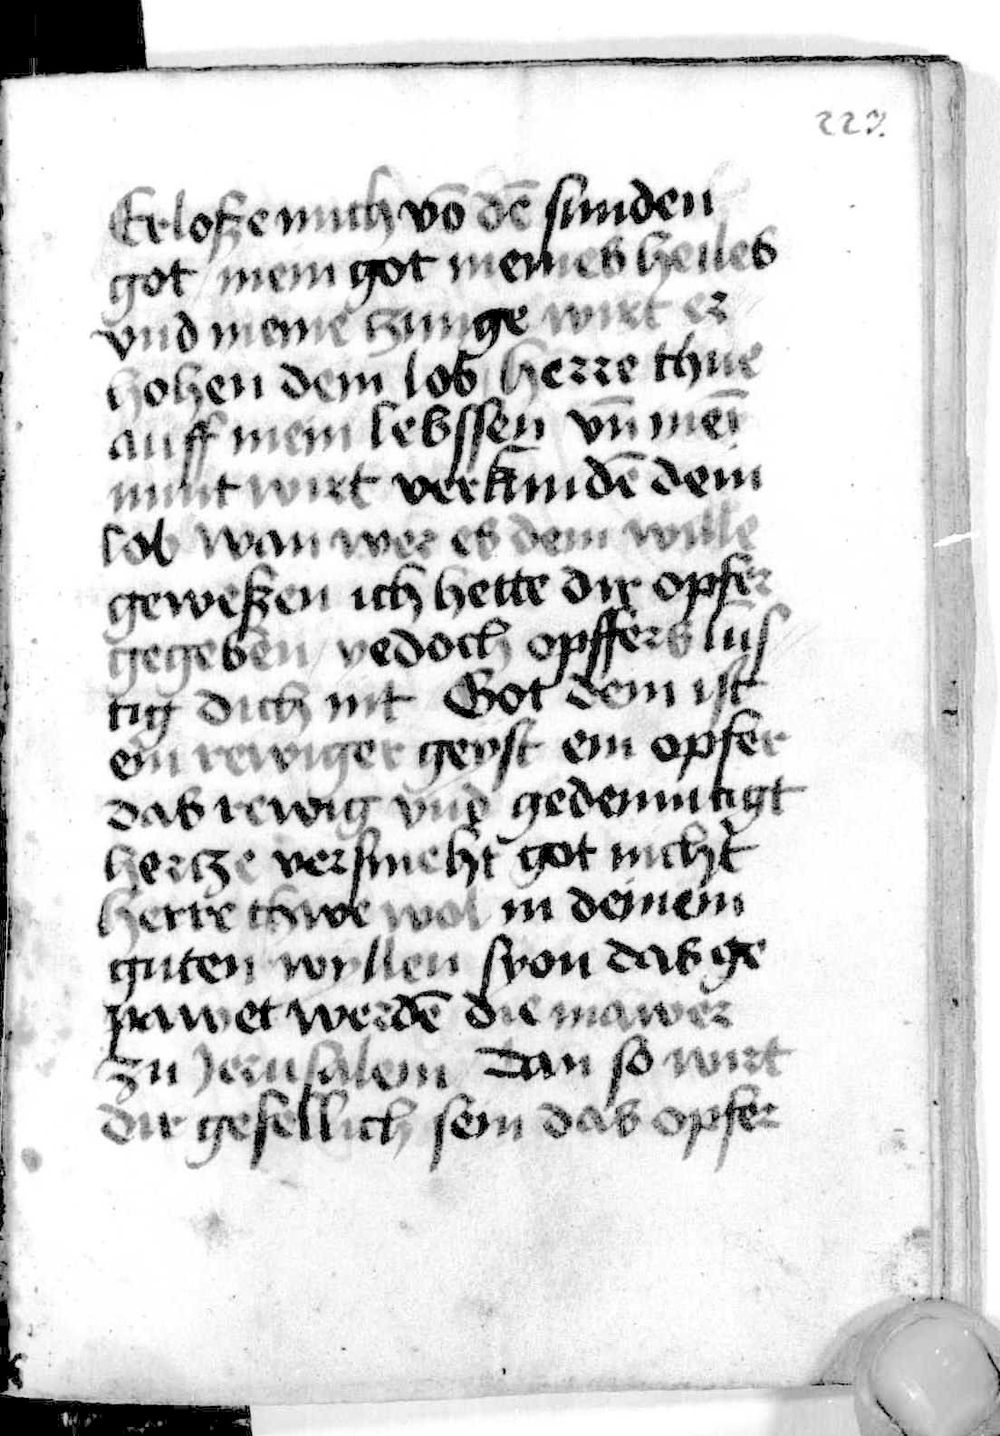 227.
Erloſze mich vō dē ſunden
got / mein got meines heiles
vnd meine tzunge wirt er
hohen dein lob / herre thue
auff mein lebſſen vn̄ mei᷑
munt wirt verkundē dein
lob wan wer es dein wille
geweſzen ich hette dir opfer
gegeben / yedoch opffers luſ
tig dich nit Got dem iſt
ein rewiger geyſt ein opfer
das rewig vnd gedemutigt
hertze verſmeht got nicht
herre thwe wol in deinem
guten wyllen ſyon das ge
pawet werdē die mawer
zu Jeruſalem Dan ſo wirt
dir gefellich ſein das opfer